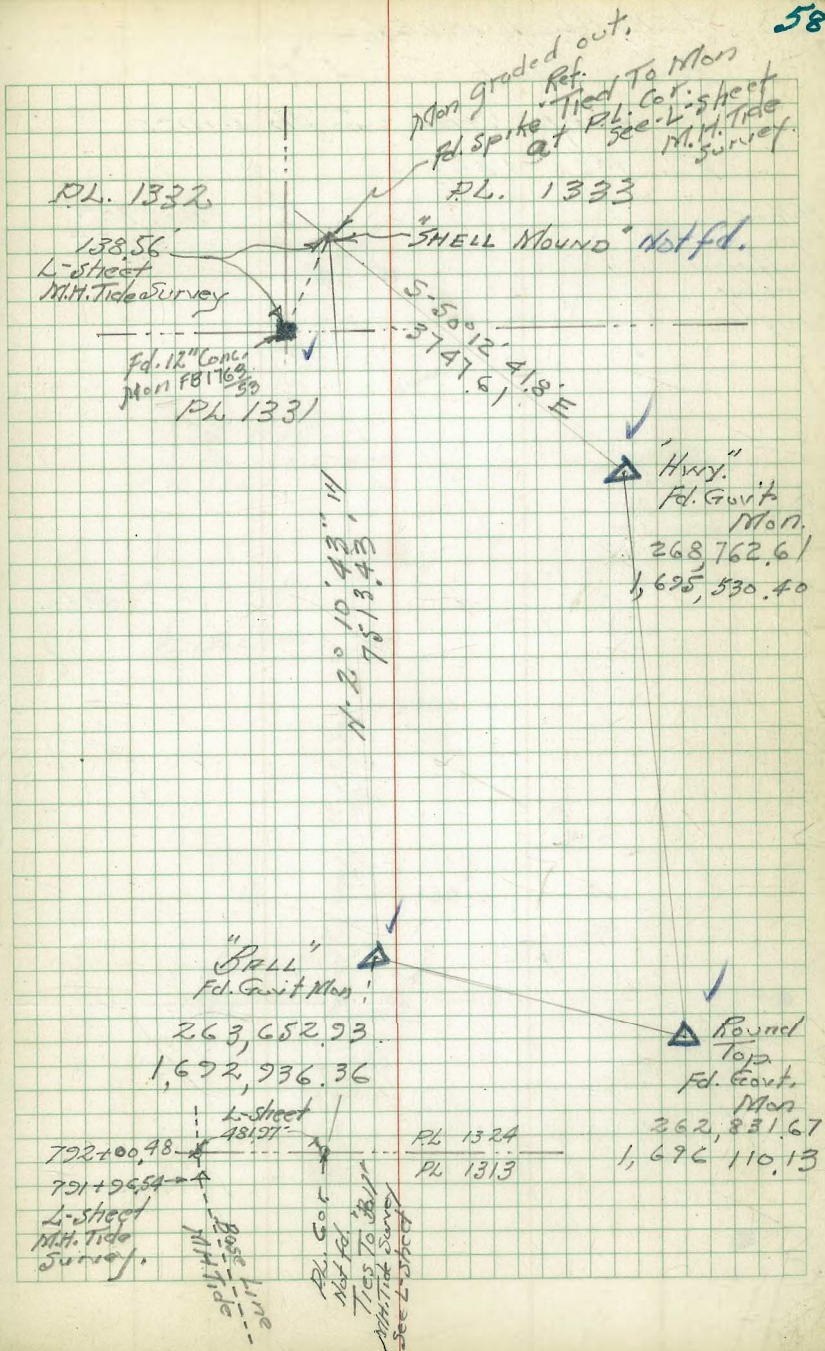 58
Mon graded out.
Ref.
Fd. Spike Tied To Mon
at P.L. Cor.
See-L-sheet
M.H. Tide
Survey.
P.L. 1332
P.L. 1333
138.56'
L-sheet
M.H. Tide Survey
"SHELL MOUND" Not fd.
S-50° 12' 41.8" E
3747.61
Fd. 12" Conc.
Mon FB 1763/53
PL 1331
"Hwy."
Fd. Gov't.
Mon.
268,762.61
1,695,530.40
N-2° 10' 43" W
7513.43'
"BALL"
Fd. Gov't Mon
263,652.93
1,692,936.36
Round
Top
Fd. Govt.
Mon
262,831.67
1,696 110.13
L-sheet
481.97'
792+00.48
791+96.54
L-sheet
M.H. Tide
Survey.
PL 1324
PL 1313
Base Line
M.H. Tide
P.L. Cor.
Not fd.
Ties To "Ball"
M.H. Tide Survey
See L-Sheet